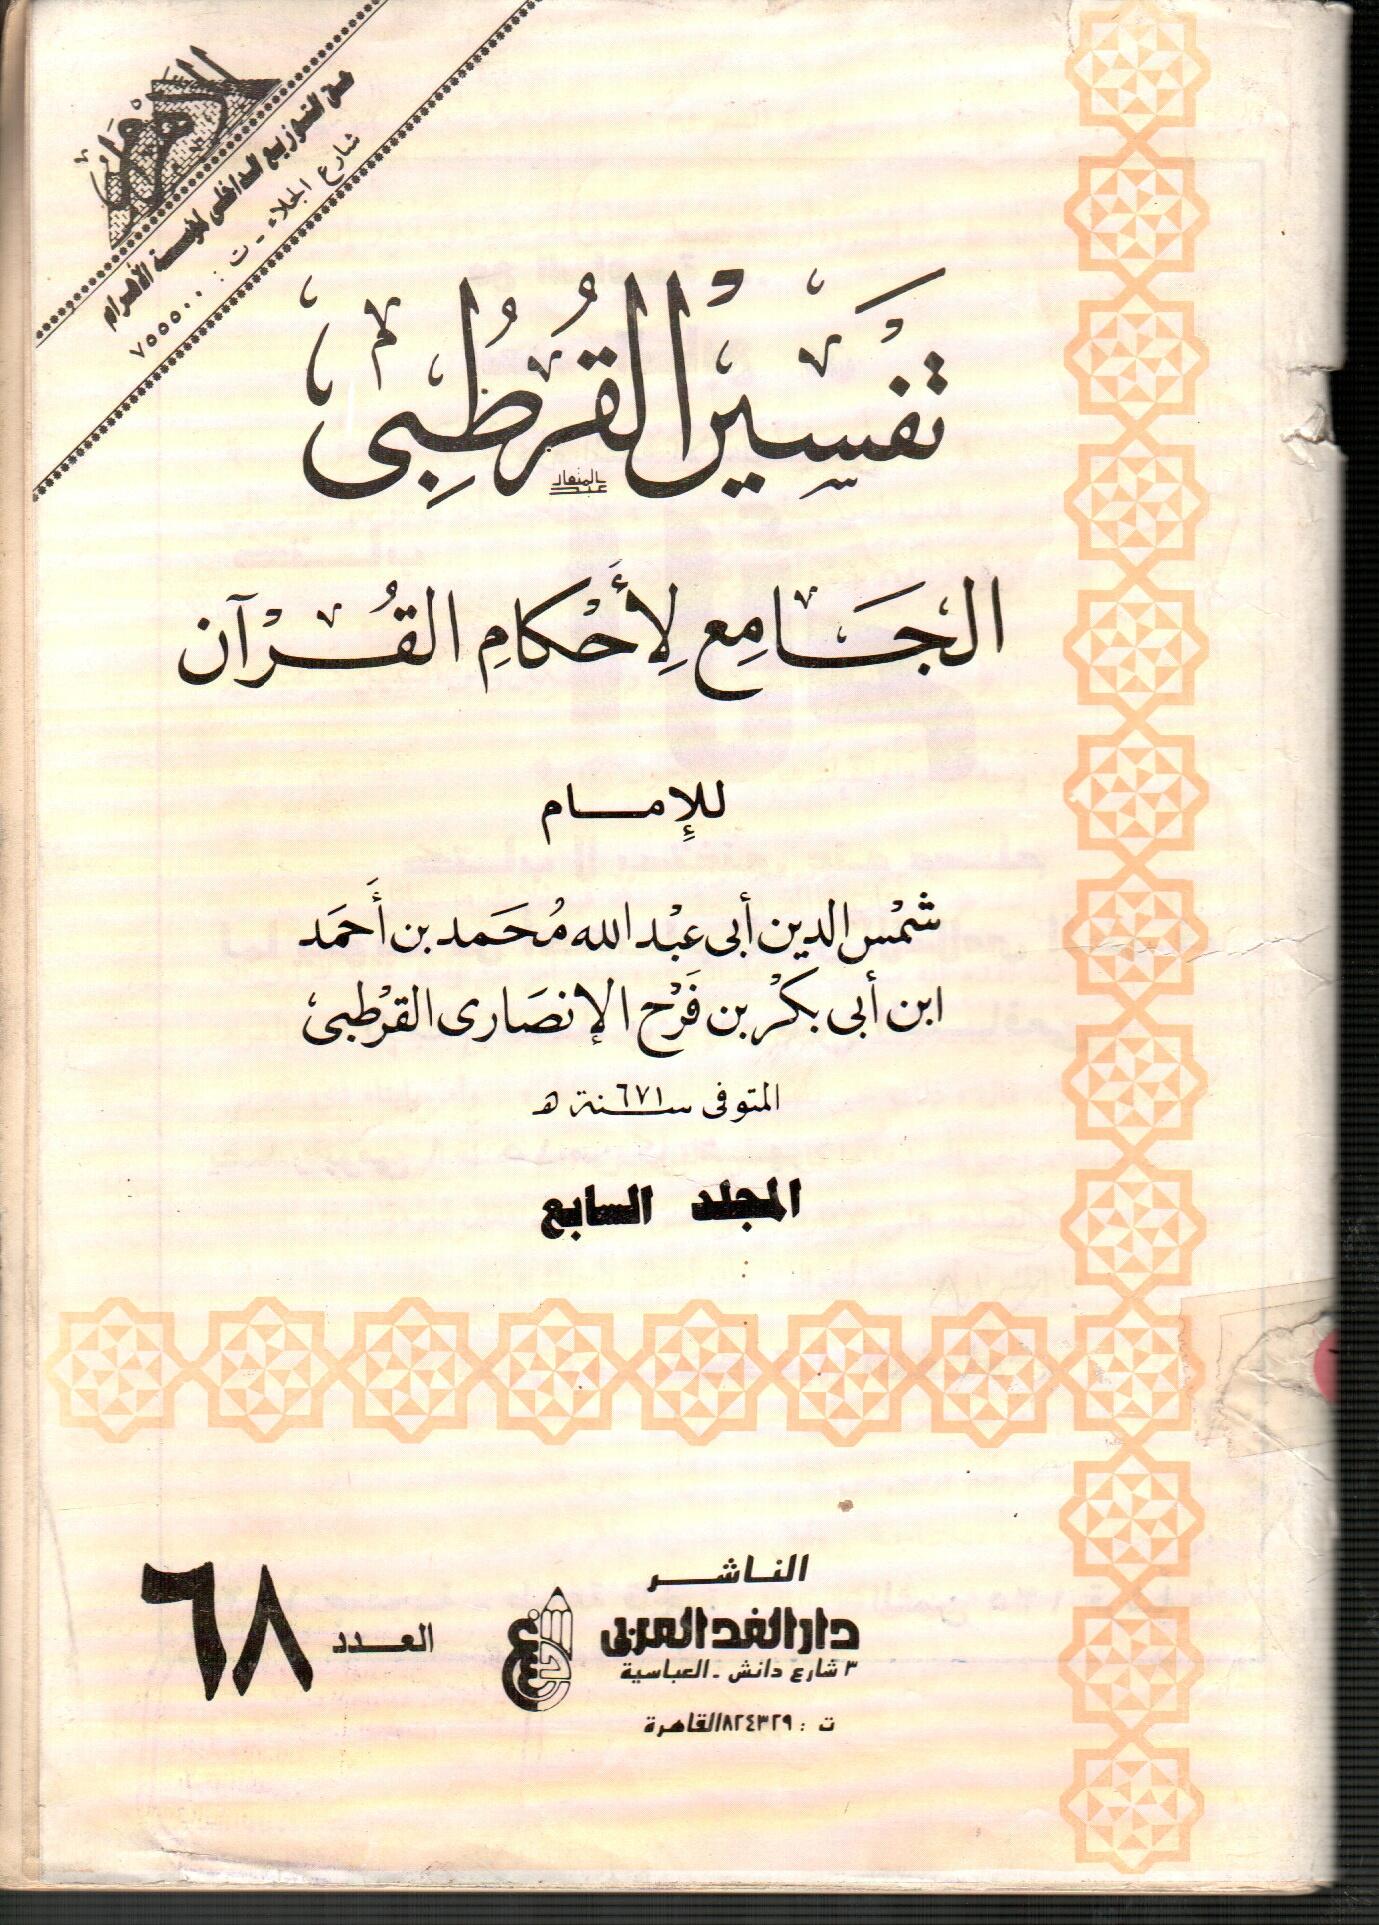 الأهرام
حق التوزيع الداخلى لمؤسسة الأهرام
شارع الجلاء - ت : ٧٥٥٥٠٠
تَفْسِيرُ القُرْطُبِى
الجَامِع لِأَحْكامِ القُرْآن
للإمام
شمْس الدين أبى عبْد الله مُحَمد بن أَحمَد
ابن أبى بكْر بن فَرْح الإنصَارى القرْطبى
المتوفى سنة ٦٧١ هـ
المجلد السابع
الناشر
دار الغد العربى
٣ شارع دانش - العباسية
ت : ٨٢٤٣٢٩ القاهرة
العدد ٦٨